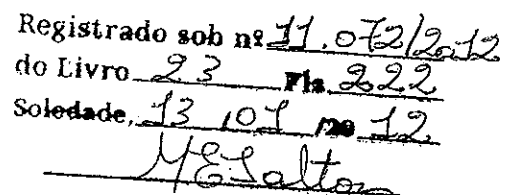 Registrado sob nº 11.072/2012
do Livro 23 Fls 222
Soledade, 13 / 01 /20 12
MESalton